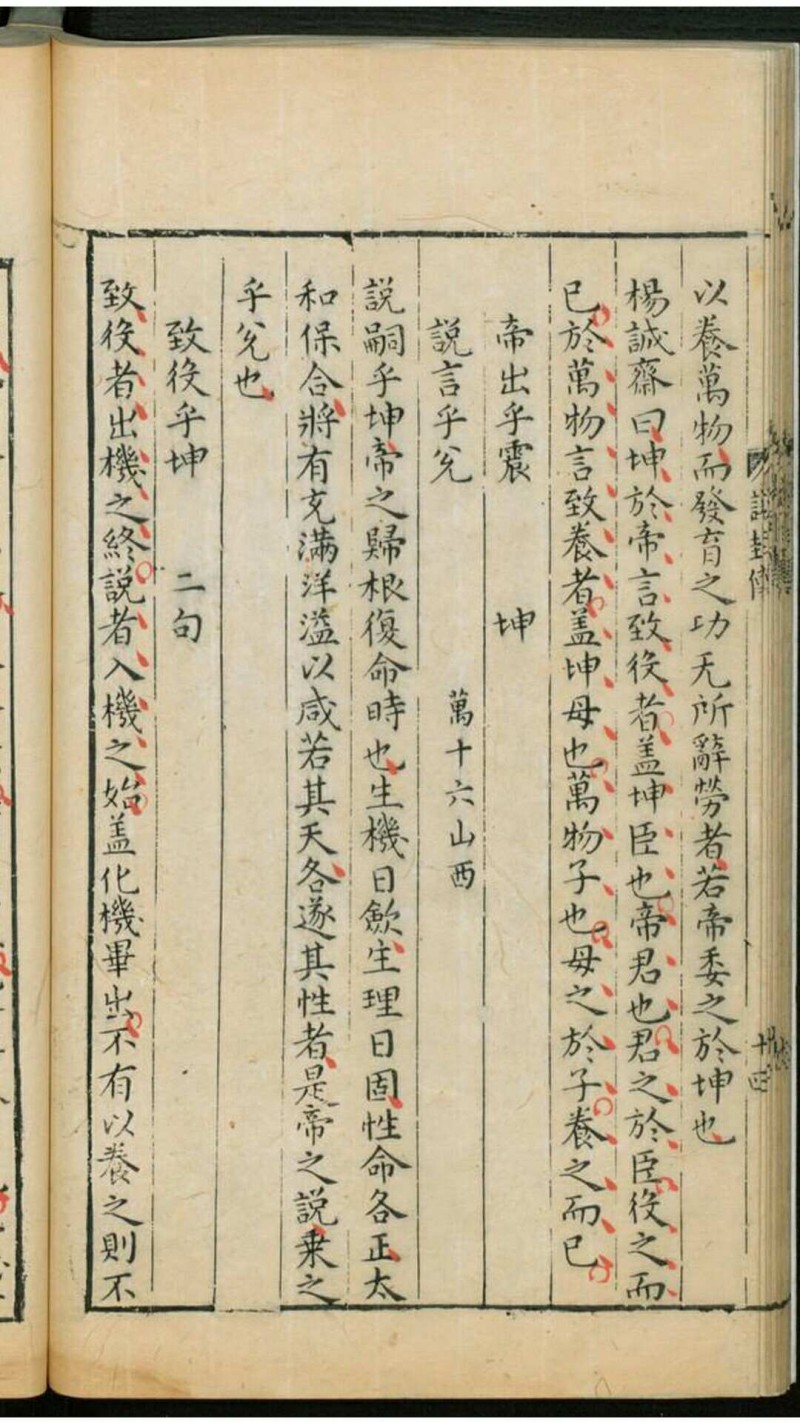 說卦傳
十四
以養萬物而發育之功无所辭勞者若帝委之於坤也
楊誠齋曰坤於帝言致役者盖坤臣也帝君也君之於臣役之而
已於萬物言致養者盖坤母也萬物子也母之於子養之而已
帝出乎震 坤
說言乎兌 萬十六山西
說嗣乎坤帝之歸根復命時也生機日歛生理日固性命各正太
和保合將有充滿洋溢以咸若其天各遂其性者是帝之說乗之
乎兌也
致役乎坤 二句
致役者出機之終說者入機之始盖化機畢出不有以養之則不